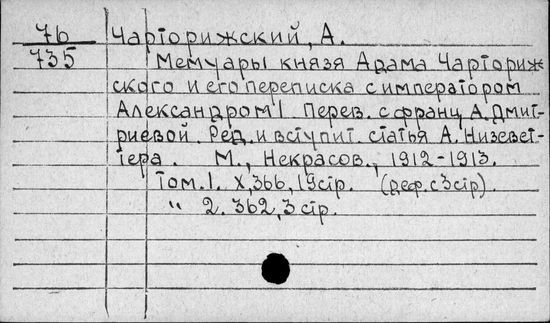 76 Чарторижский, А.
735 Мемуары князя Адама Чарториж-
ского и его переписка с императором
Александром I. Перев. с франц. А. Дмит-
риевой. Ред. и вступит. статья А. Кизевет-
тера. М., Некрасов, 1912-1913.
Том. 1. X, 366, 19 стр. (деф. с 3 стр).
" 2. 362, 3 стр.